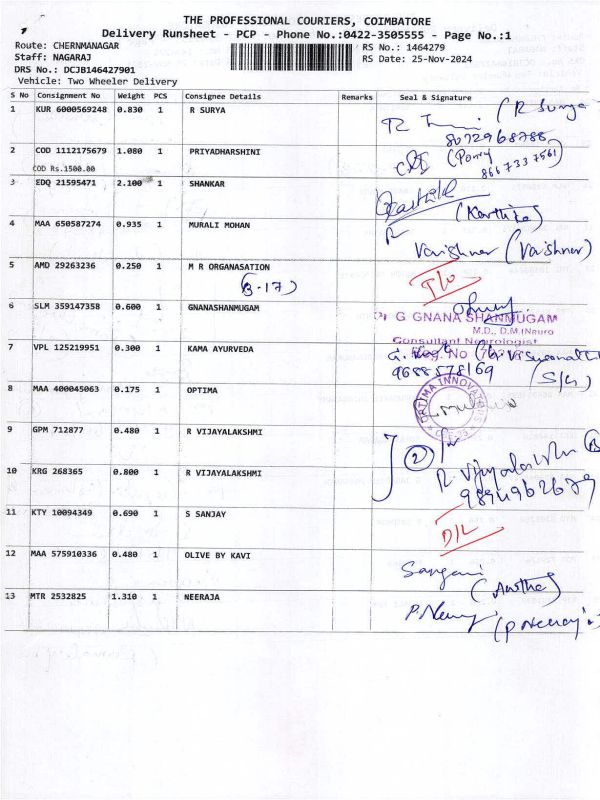 THE PROFESSIONAL COURIERS, COIMBATORE
Delivery Runsheet - PCP - Phone No.:0422-3505555 - Page No.:1
Route: CHERNMANAGAR RS No.: 1464279
Staff: NAGARAJ RS Date: 25-Nov-2024
DRS No.: DCJB146427901
Vehicle: Two Wheeler Delivery
S No Consignment No Weight PCS Consignee Details Remarks Seal & Signature
1 KUR 6000569248 0.830 1 R SURYA (R Surya
8072968788
2 COD 1112175679 1.080 1 PRIYADHARSHINI
COD Rs.1500.00 8667337561)
3 EDQ 21595471 2.100 1 SHANKAR
(Karthika)
4 MAA 650587274 0.935 1 MURALI MOHAN
Varishner (Varishner)
5 AMD 29263236 0.250 1 M R ORGANASATION
(B-17)
6 SLM 359147358 0.600 1 GNANASHANMUGAM
G GNANA SHANMUGAM
M.D., D.M.(Neuro
Consultant Neurologist
7 VPL 125219951 0.300 1 KAMA AYURVEDA
Reg. No
9688578169
8 MAA 400045063 0.175 1 OPTIMA
OPTIMA INNOVATIONS
9 GPM 712877 0.480 1 R VIJAYALAKSHMI
2
10 KRG 268365 0.800 1 R VIJAYALAKSHMI
R. Vijayalakshmi
9894962679
11 KTY 10094349 0.690 1 S SANJAY
D/L
12 MAA 575910336 0.480 1 OLIVE BY KAVI
13 MTR 2532825 1.310 1 NEERAJA